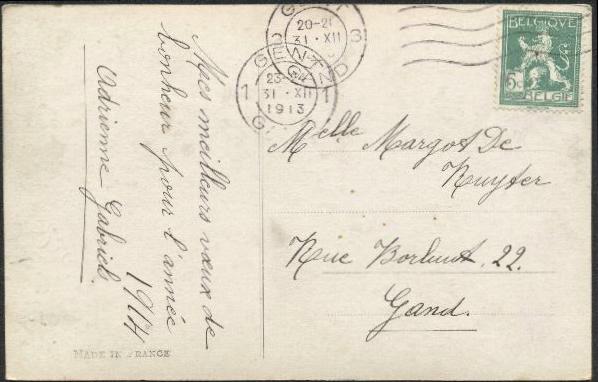 Mes meilleurs vœux de
bonheur pour l'année
1914
Adrienne Gabriels.
MADE IN FRANCE
GENT
20-21
31 · XII
3
GENT
23-
31 · XII
1913
1 1
GAND
BELGIQUE
5c
BELGIË
Melle Margot De
Ruyter
Rue Borluut. 22.
Gand.